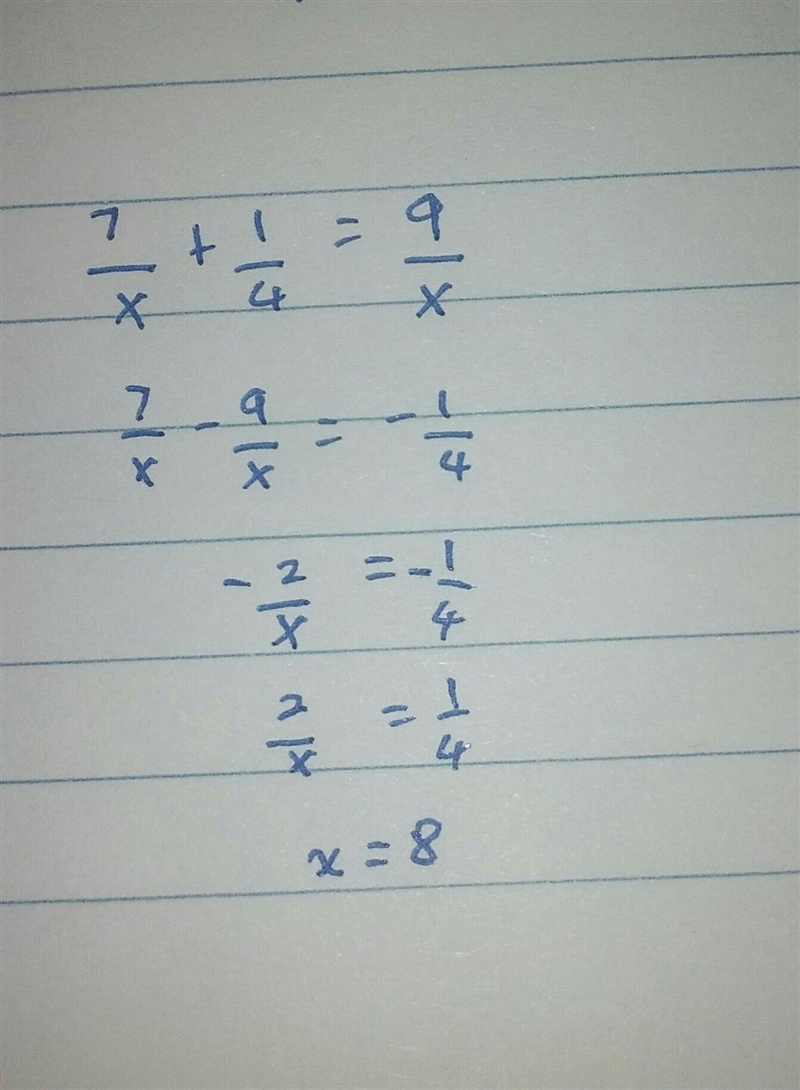 7/x + 1/4 = 9/x
7/x - 9/x = - 1/4
- 2/x = - 1/4
2/x = 1/4
x = 8